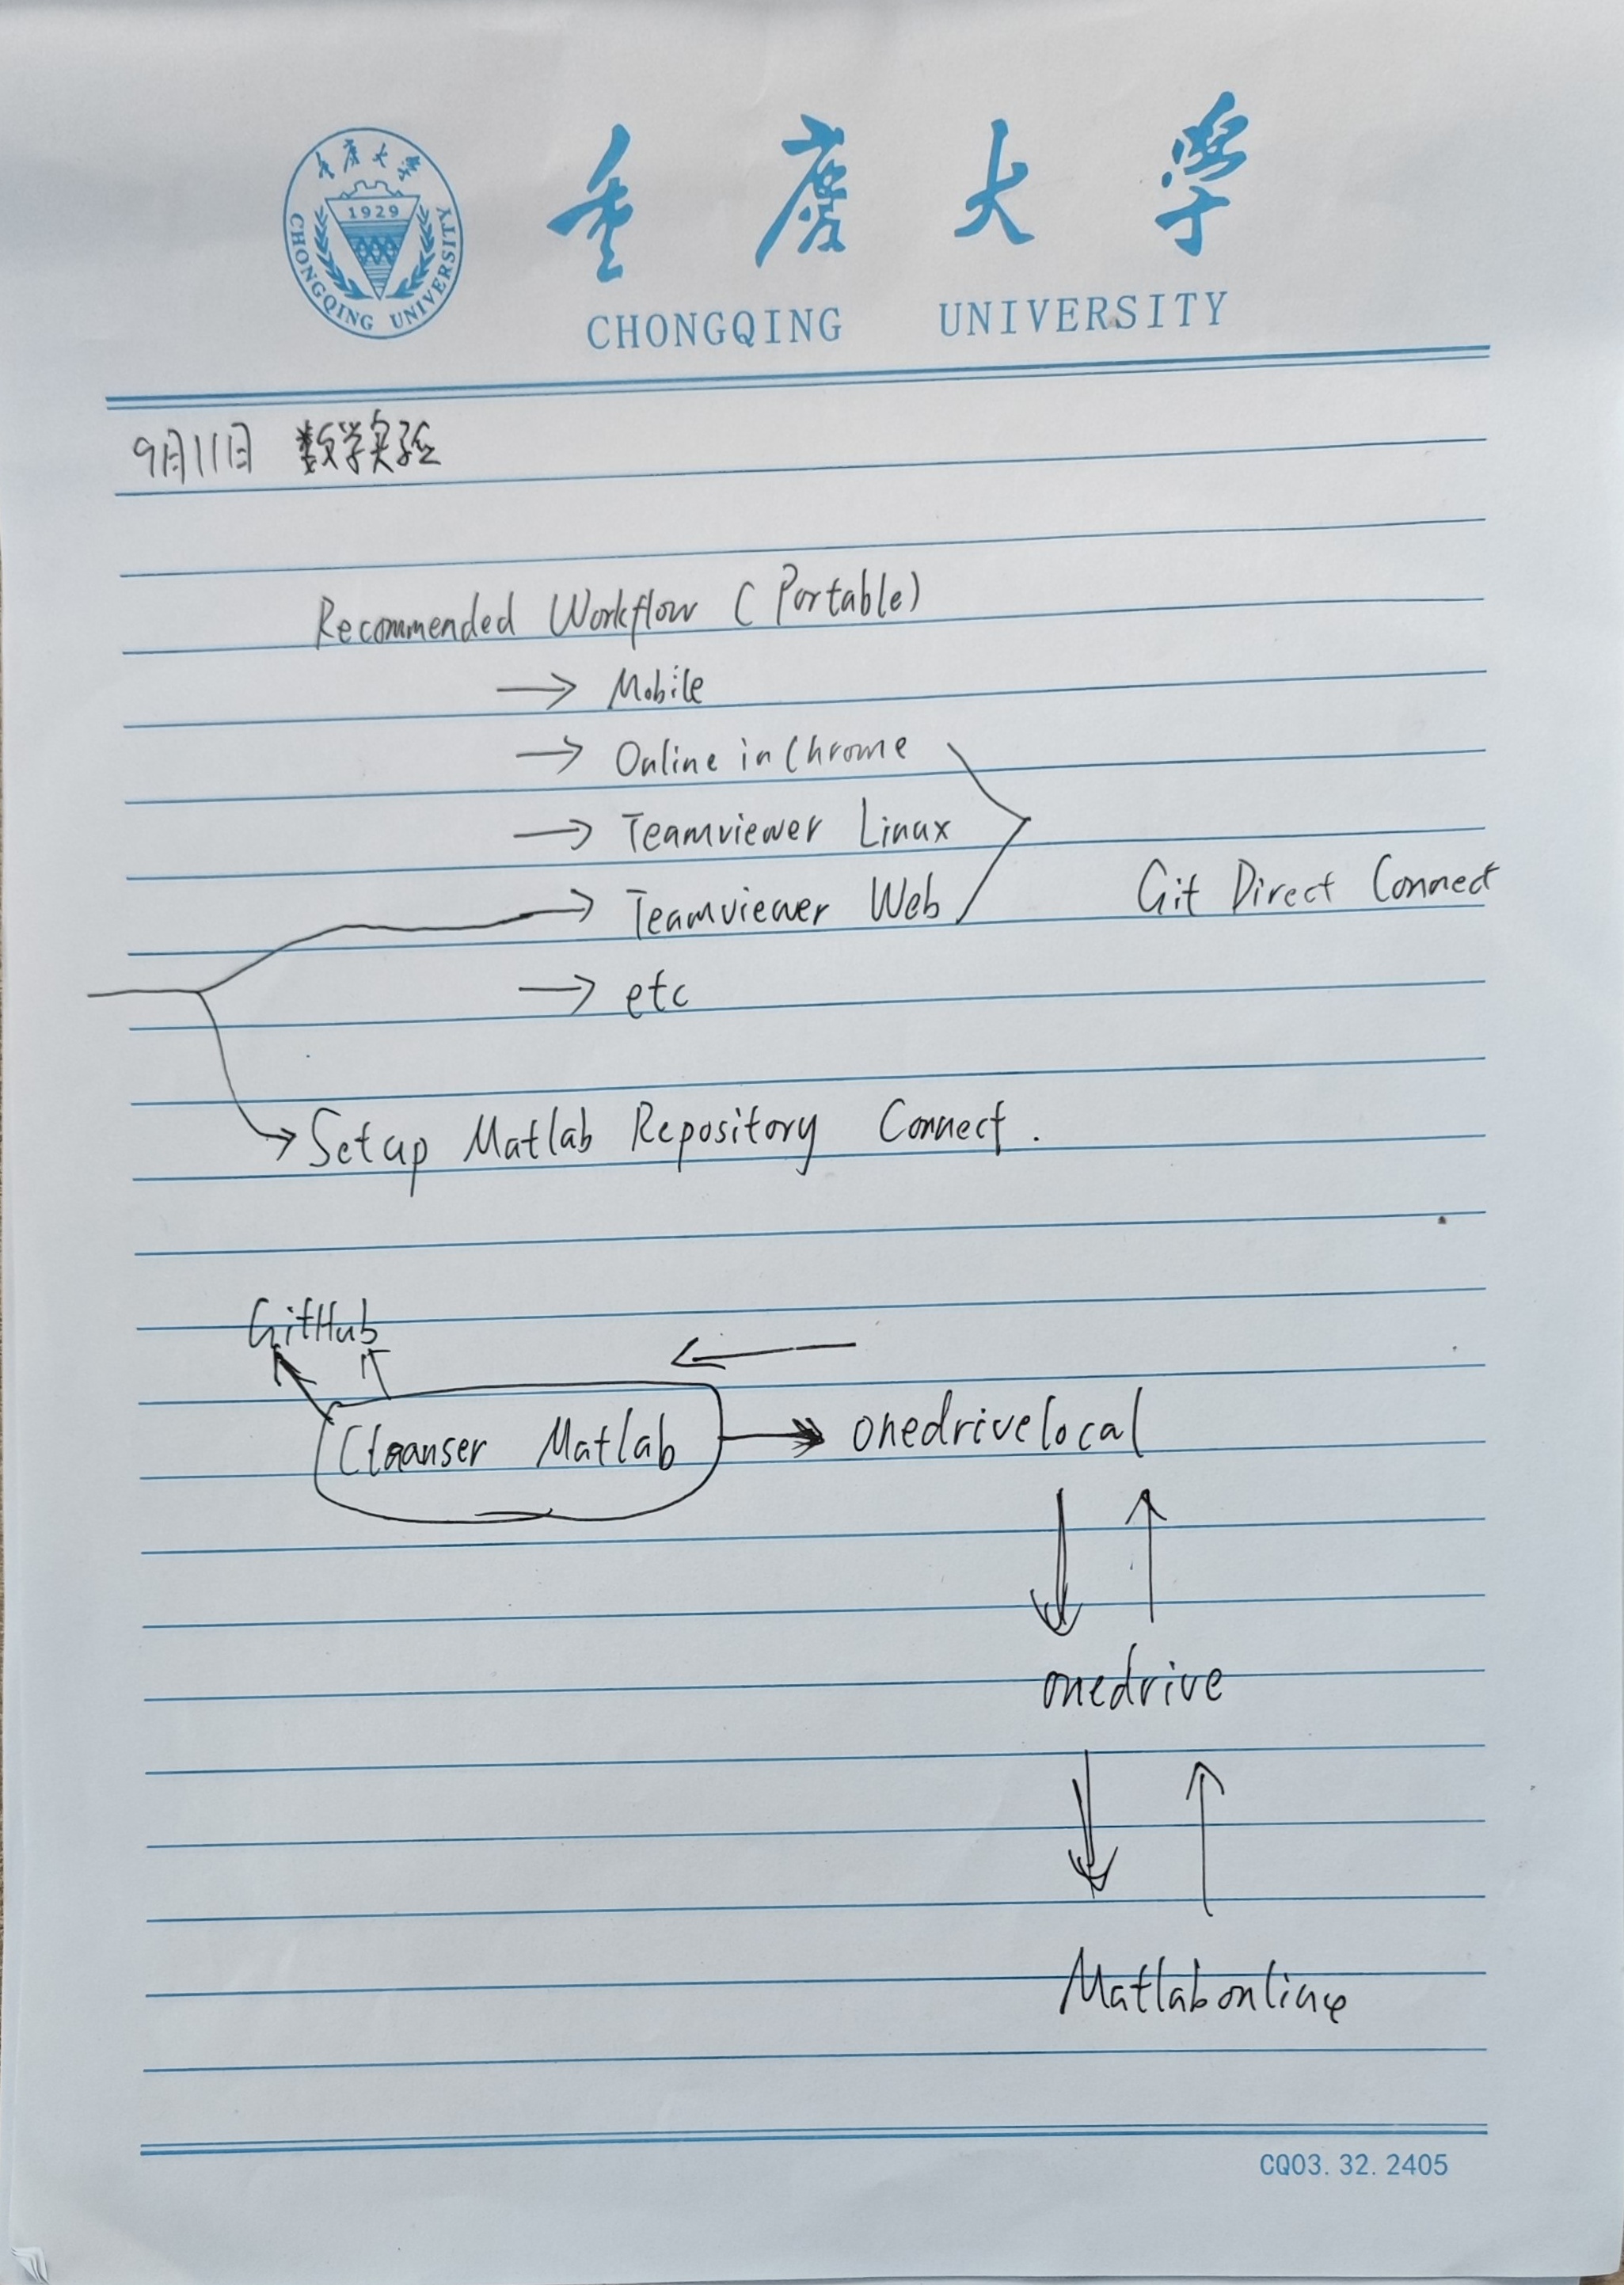 重庆大学
1929
CHONGQING UNIVERSITY
重庆大学
CHONGQING UNIVERSITY
9月11日 数学实验
Recommended Workflow (Portable)
→ Mobile
→ Online in Chrome
→ Teamviewer Linux
→ Teamviewer Web
Git Direct Connect
→ etc
→ Setup Matlab Repository Connect.
GitHub
Cleanser Matlab → onedrivelocal
onedrive
Matlabonline
CQ03.32.2405